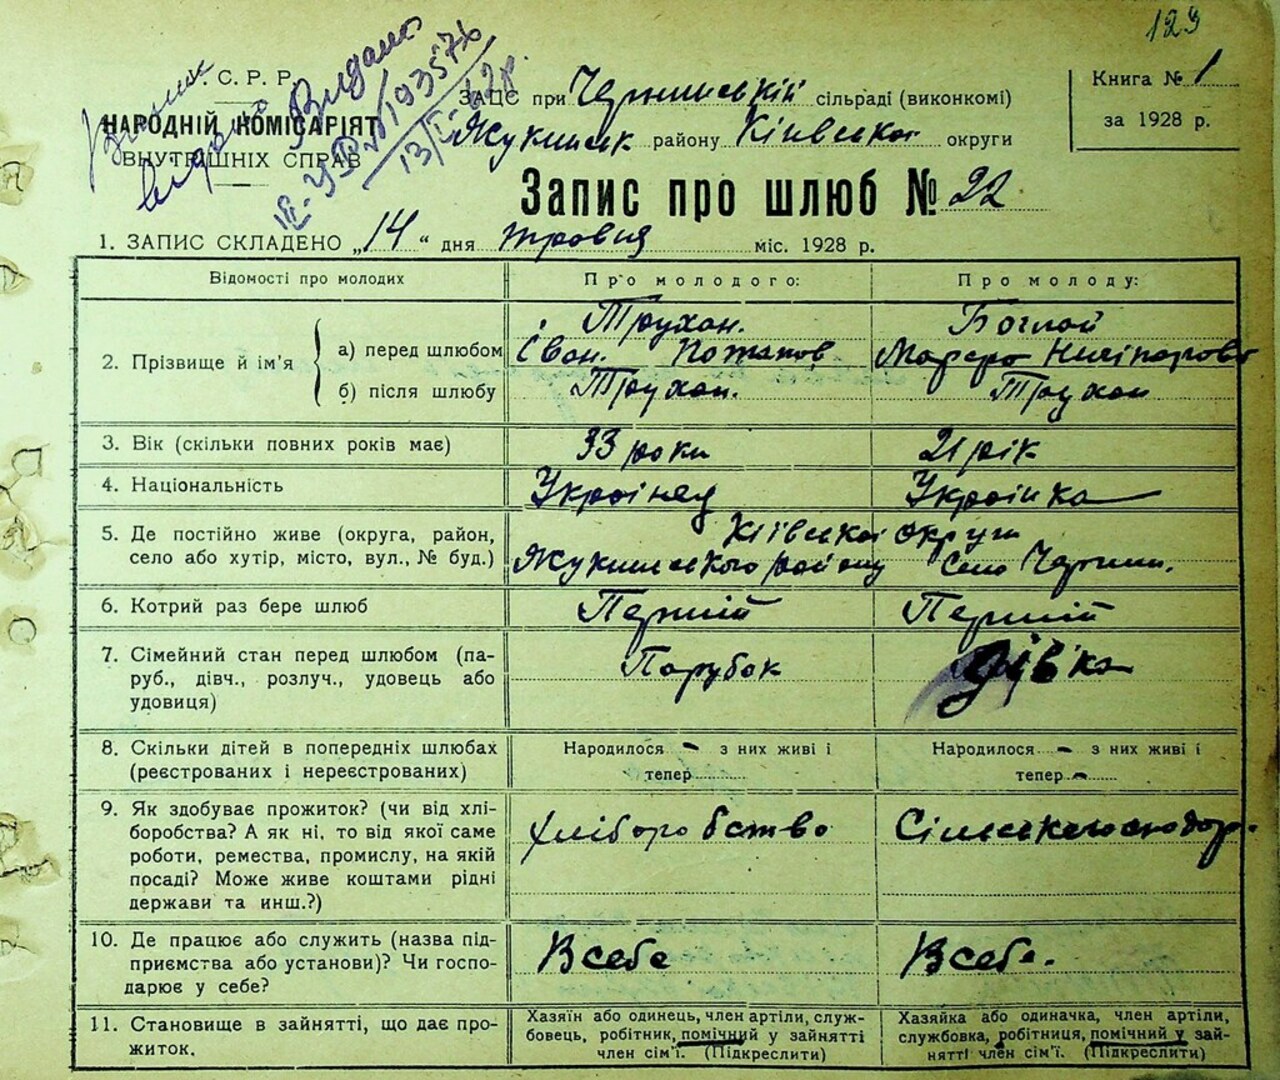 129
У. С. Р. Р.
НАРОДНІЙ КОМІСАРІЯТ
ВНУТРІШНІХ СПРАВ
Видано
193576
13/
ЗАЦС при Чернинській сільраді (виконкомі)
Жукинськ району Київської округи
Книга № 1
за 1928 р.
Запис про шлюб № 22
1. ЗАПИС СКЛАДЕНО „14“ дня травня міс. 1928 р.
Відомості про молодих
Про молодого:
Про молоду:
2. Прізвище й ім'я
а) перед шлюбом
Трухан.
Іван. Потапов
Боглай
б) після шлюбу
Трухан.
Трухан
3. Вік (скільки повних років має)
33 роки
21 рік
4. Національність
Украінец
Украінка
5. Де постійно живе (округа, район,
село або хутір, місто, вул., № буд.)
Київської округи
Жукинського району Село Чернин.
6. Котрий раз бере шлюб
Перший
Перший
7. Сімейний стан перед шлюбом (па-
руб., дівч., розлуч., удовець або
удовиця)
Парубок
Дівка
8. Скільки дітей в попередніх шлюбах
(реєстрованих і нереєстрованих)
Народилося - з них живі і
тепер
Народилося - з них живі і
тепер -
9. Як здобуває прожиток? (чи від хлі-
боробства? А як ні, то від якої саме
роботи, ремества, промислу, на якій
посаді? Може живе коштами рідні
держави та инш.?)
Хліборобство
10. Де працює або служить (назва під-
приємства або установи)? Чи госпо-
дарює у себе?
В себе
В себе.
11. Становище в зайнятті, що дає про-
житок.
Хазяїн або одинець, член артіли, служ-
бовець, робітник, помічний у зайнятті
член сім'ї. (Підкреслити)
Хазяйка або одиначка, член артіли,
службовка, робітниця, помічний у зай-
нятті член сім'ї. (Підкреслити)